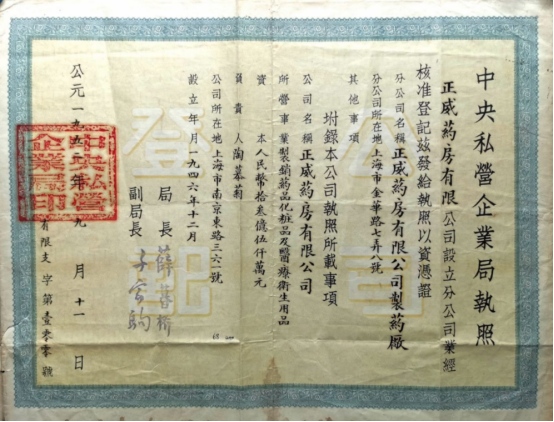 中央私營企業局執照
正威葯房有限公司設立分公司業經
核准登記兹發給執照以資憑證
分公司名稱 正威葯房有限公司製葯廠
分公司所在地 上海市金華路七弄八號
其他事項
坿録本公司執照所載事項
公司名稱 正威葯房有限公司
所營事業 製銷葯品化粧品及醫療衛生用品
資本 人民幣拾叁億伍仟萬元
負責人 陶慕菊
公司所在地 上海市南京東路三六號
設立年月 一九四六年十二月
局長 薛暮橋
副局長
公元一九五〇年九月十一日
有限支字第壹零零號
中央私營企業局印
公司登記